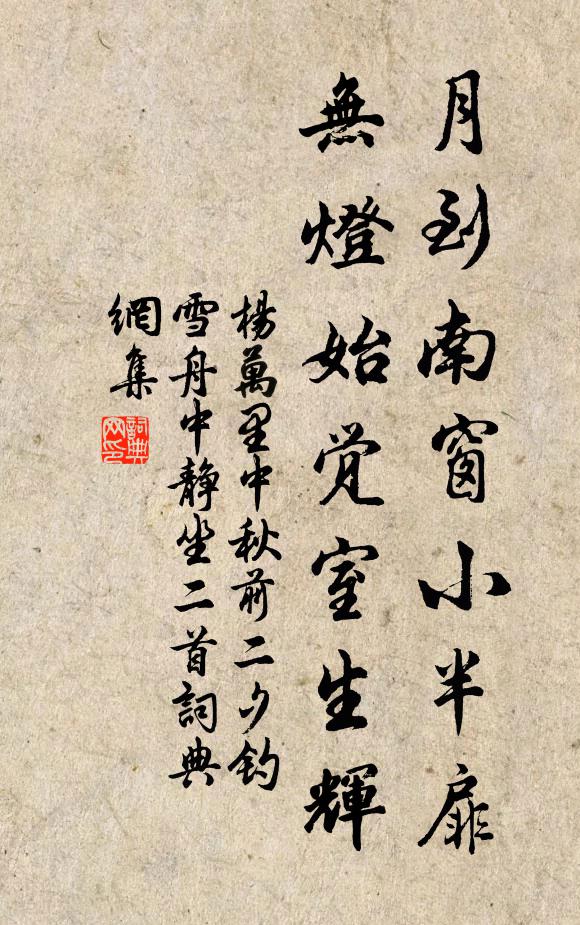 月到南窗小半扉
無燈始覺室生輝
楊萬里中秋前二夕釣
雪舟中靜坐二首詞典
網集
詞典網印